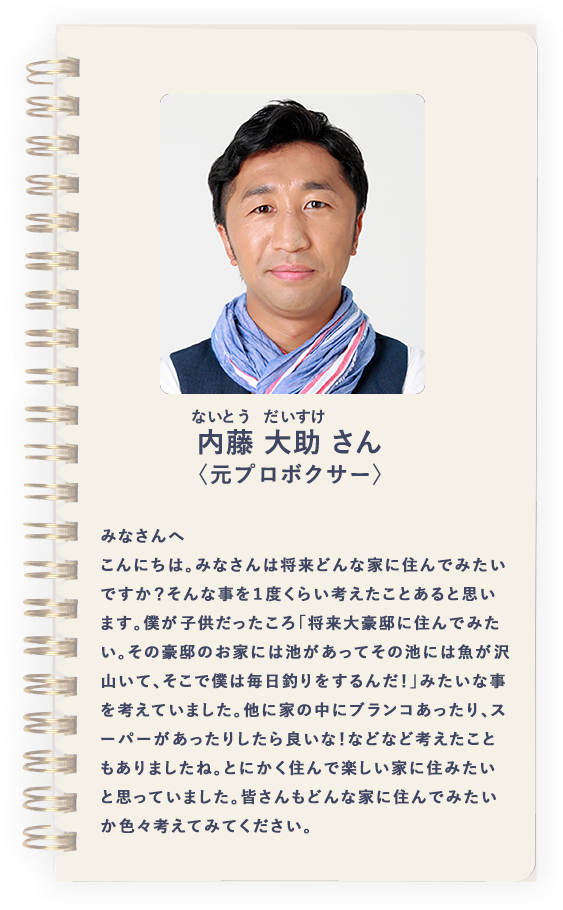 ないとう だいすけ
内藤 大助 さん
〈元プロボクサー〉
みなさんへ
こんにちは。みなさんは将来どんな家に住んでみたい
ですか?そんな事を1度くらい考えたことあると思い
ます。僕が子供だったころ「将来大豪邸に住んでみた
い。その豪邸のお家には池があってその池には魚が沢
山いて、そこで僕は毎日釣りをするんだ!」みたいな事
を考えていました。他に家の中にブランコあったり、ス
ーパーがあったりしたら良いな!などなど考えたこと
もありましたね。とにかく住んで楽しい家に住みたい
と思っていました。皆さんもどんな家に住んでみたい
か色々考えてみてください。